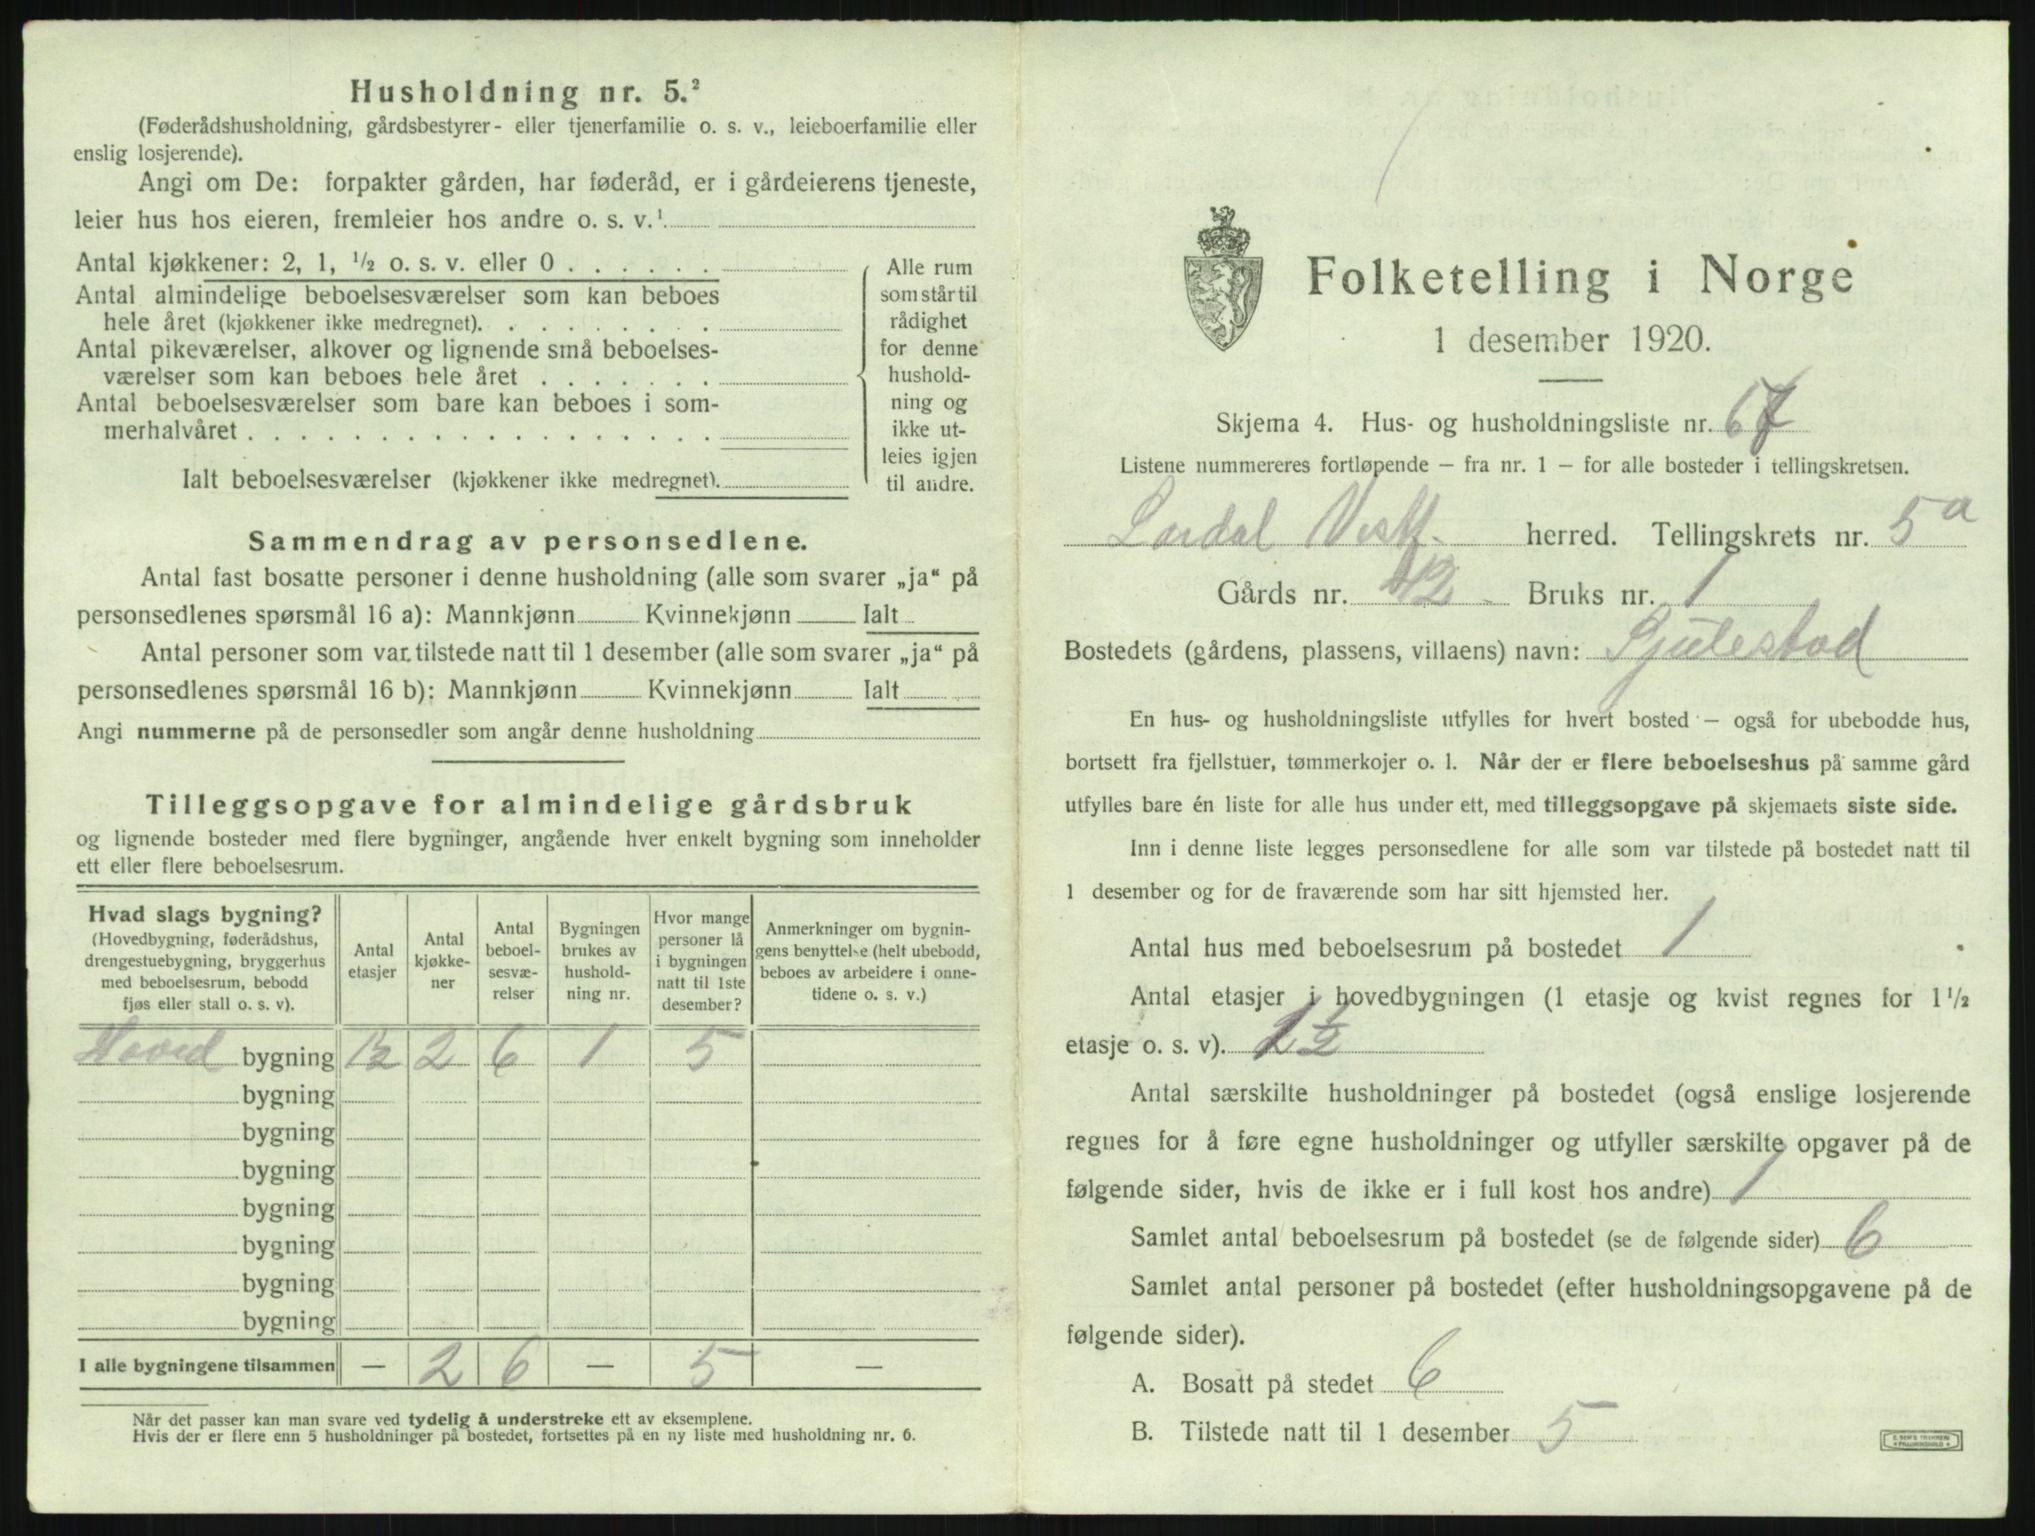 Husholdning nr. 5.²
(Føderådshusholdning, gårdsbestyrer- eller tjenerfamilie o. s. v., leieboerfamilie eller
enslig losjerende).
Angi om De: forpakter gården, har føderåd, er i gårdeierens tjeneste,
leier hus hos eieren, fremleier hos andre o. s. v.¹
Antal kjøkkener: 2, 1, ½ o. s. v. eller 0 . . . . . .
Antal almindelige beboelsesværelser som kan beboes
hele året (kjøkkener ikke medregnet). . . . . . . . .
Antal pikeværelser, alkover og lignende små beboelses-
værelser som kan beboes hele året . . . . . . .
Antal beboelsesværelser som bare kan beboes i som-
merhalvåret . . . . . . . . . . . . . . . . . .
Ialt beboelsesværelser (kjøkkener ikke medregnet).
Alle rum
som står til
rådighet
for denne
hushold-
ning og
ikke ut-
leies igjen
til andre.
Sammendrag av personsedlene.
Antal fast bosatte personer i denne husholdning (alle som svarer „ja“ på
personsedlenes spørsmål 16 a): Mannkjønn Kvinnekjønn Ialt
Antal personer som var tilstede natt til 1 desember (alle som svarer „ja“ på
personsedlenes spørsmål 16 b): Mannkjønn Kvinnekjønn Ialt
Angi nummerne på de personsedler som angår denne husholdning
Tilleggsopgave for almindelige gårdsbruk
og lignende bosteder med flere bygninger, angående hver enkelt bygning som inneholder
ett eller flere beboelsesrum.
Hvad slags bygning?
(Hovedbygning, føderådshus,
drengestuebygning, bryggerhus
med beboelsesrum, bebodd
fjøs eller stall o. s. v).
Antal
etasjer
Antal
kjøkke-
ner
Antal
beboel-
sesvæ-
relser
Bygningen
brukes av
hushold-
ning nr.
Hvor mange
personer lå
i bygningen
natt til 1ste
desember?
Anmerkninger om bygnin-
gens benyttelse (helt ubebodd,
beboes av arbeidere i onne-
tidene o. s. v.)
Hoved bygning 1½ 2 6 1 5
bygning
bygning
bygning
bygning
bygning
bygning
bygning
I alle bygningene tilsammen — 2 6 — 5 —
Når det passer kan man svare ved tydelig å understreke ett av eksemplene.
Hvis der er flere enn 5 husholdninger på bostedet, fortsettes på en ny liste med husholdning nr. 6.
Folketelling i Norge
1 desember 1920.
Skjema 4. Hus- og husholdningsliste nr. 67
Listene nummereres fortløpende — fra nr. 1 — for alle bosteder i tellingskretsen.
Lardal Vestf. herred. Tellingskrets nr. 5a
Gårds nr. 42 Bruks nr. 1
Bostedets (gårdens, plassens, villaens) navn: Sjulestad
En hus- og husholdningsliste utfylles for hvert bosted — også for ubebodde hus,
bortsett fra fjellstuer, tømmerkojer o. l. Når der er flere beboelseshus på samme gård
utfylles bare én liste for alle hus under ett, med tilleggsopgave på skjemaets siste side.
Inn i denne liste legges personsedlene for alle som var tilstede på bostedet natt til
1 desember og for de fraværende som har sitt hjemsted her.
Antal hus med beboelsesrum på bostedet 1
Antal etasjer i hovedbygningen (1 etasje og kvist regnes for 1½
etasje o. s. v). 1½
Antal særskilte husholdninger på bostedet (også enslige losjerende
regnes for å føre egne husholdninger og utfyller særskilte opgaver på de
følgende sider, hvis de ikke er i full kost hos andre) 1
Samlet antal beboelsesrum på bostedet (se de følgende sider) 6
Samlet antal personer på bostedet (efter husholdningsopgavene på de
følgende sider).
A. Bosatt på stedet 6
B. Tilstede natt til 1 desember 5